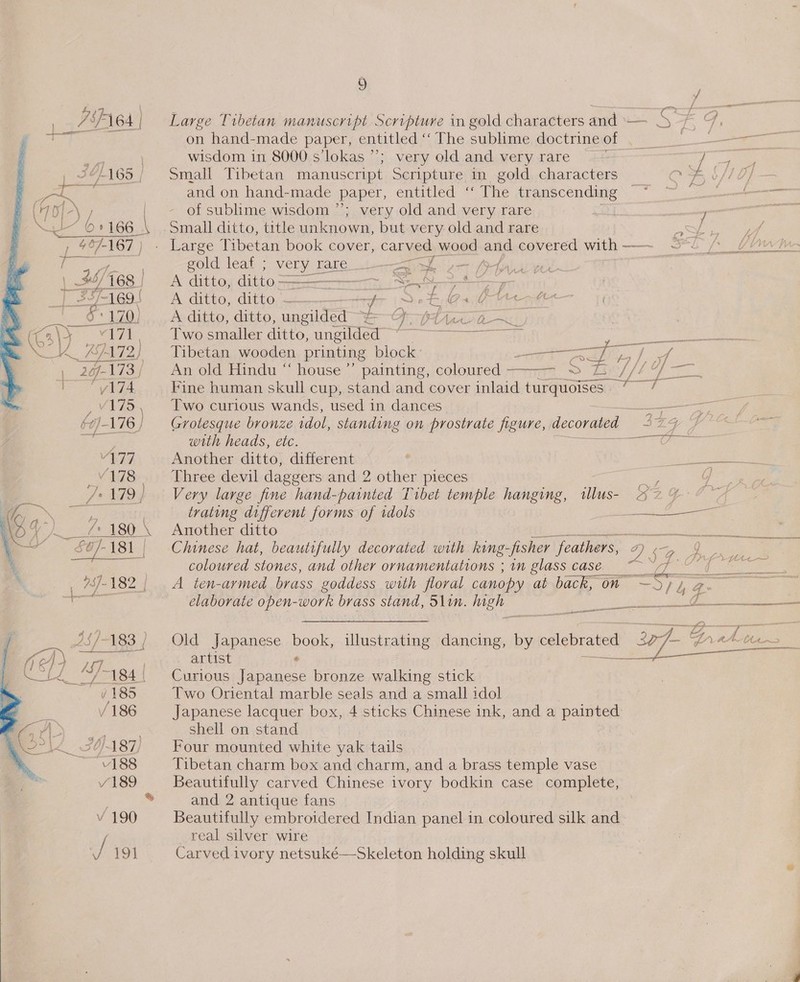 9
164 Large Tibetan manuscript Scripture in gold characters and
on hand-made paper, entitled “ The sublime doctrine of
wisdom in 8000 s'lokas ”; very old and very rare
165 Small Tibetan manuscript Scripture in gold characters
and on hand-made paper, entitled “ The transcending
of sublime wisdom ”; very old and very rare
166 Small ditto, title unknown, but very old and rare
167 Large Tibetan book cover, carved wood and covered with
gold leaf ; very rare
168 A ditto, ditto
169 A ditto, ditto
170 A ditto, ditto, ungilded
171 Two smaller ditto, ungilded
172 Tibetan wooden printing block
173 An old Hindu “ house ” painting, coloured
174 Fine human skull cup, stand and cover inlaid turquoises
175 Two curious wands, used in dances
176 Grotesque bronze idol, standing on prostrate figure, decorated
with heads, etc.
177 Another ditto, different
178 Three devil daggers and 2 other pieces
179 Very large fine hand-painted Tibet temple hanging, illus-
trating different forms of idols
180 Another ditto
181 Chinese hat, beautifully decorated with king-fisher feathers,
coloured stones, and other ornamentations ; in glass case
182 A ten-armed brass goddess with floral canopy at back, on
elaborate open-work brass stand, 51in. high
183 Old Japanese book, illustrating dancing, by celebrated
artist
184 Curious Japanese bronze walking stick
185 Two Oriental marble seals and a small idol
186 Japanese lacquer box, 4 sticks Chinese ink, and a painted
shell on stand
187 Four mounted white yak tails
188 Tibetan charm box and charm, and a brass temple vase
189 Beautifully carved Chinese ivory bodkin case complete,
and 2 antique fans
190 Beautifully embroidered Indian panel in coloured silk and
real silver wire
191 Carved ivory netsuké—Skeleton holding skull